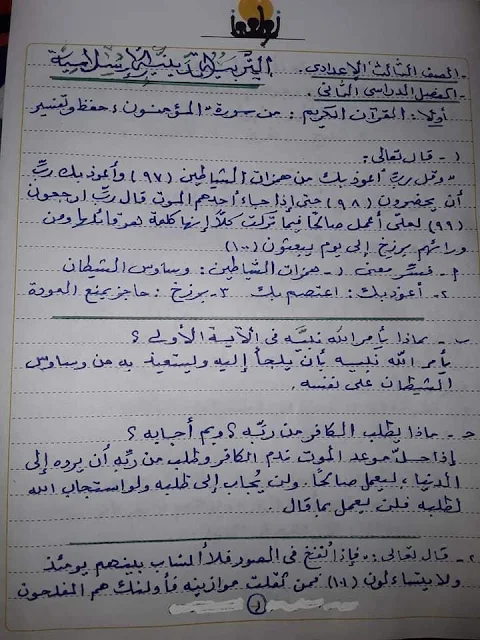 التربية الدينية الإسلامية
- الصف الثالث الإعدادي.
- الفصل الدراسي الثاني.
أولاً: القرآن الكريم: من سورة المؤمنون، حفظ وتفسير
١- قال تعالى:
" وقل ربِّ أعوذ بك من همزات الشياطين (٩٧) وأعوذ بك ربِّ
أن يحضرون (٩٨) حتى إذا جاء أحدهم الموت قال ربِّ ارجعون
(٩٩) لعلي أعمل صالحًا فيما تركت كلَّا إنها كلمة هو قائلها ومن
ورائهم برزخ إلى يوم يبعثون (١٠٠)
أ- فسِّر معنى ١- همزات الشياطين: وساوس الشيطان
٢- أعوذ بك: اعتصم بك ٣- برزخ: حاجز يمنع العودة
ب- بماذا يأمر الله نبيَّه في الآية الأولى؟
يأمر الله نبيه بأن يلجأ إليه وليستعيذ به من وساوس
الشيطان على نفسه.
ج- ماذا يطلب الكافر من ربِّه؟ وبم أجابه؟
إذا حلَّ موعد الموت ندم الكافر وطلب من ربِّه أن يرده إلى
الدنيا، ليعمل صالحًا. ولن يُجاب إلى طلبه ولو استجاب الله
لطلبه فلن يعمل بما قال.
٢- قال تعالى: " فإذا نُفخ في الصور فلا أنساب بينهم يومئذ
ولا يتساءلون (١٠١) فمن ثقلت موازينه فأولئك هم المفلحون
١